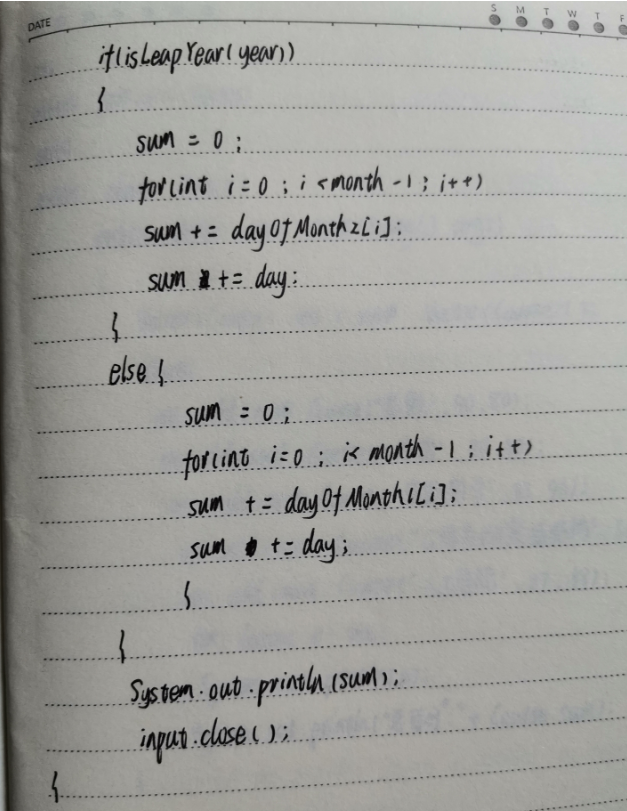 DATE
S M T W T F
if(isLeapYear(year))
{
sum = 0;
for(int i=0; i<month-1; i++)
sum += dayOfMonth2[i];
sum += day;
}
else{
sum = 0;
for(int i=0; i<month-1; i++)
sum += dayOfMonth1[i];
sum += day;
}
}
System.out.println(sum);
input.close();
}